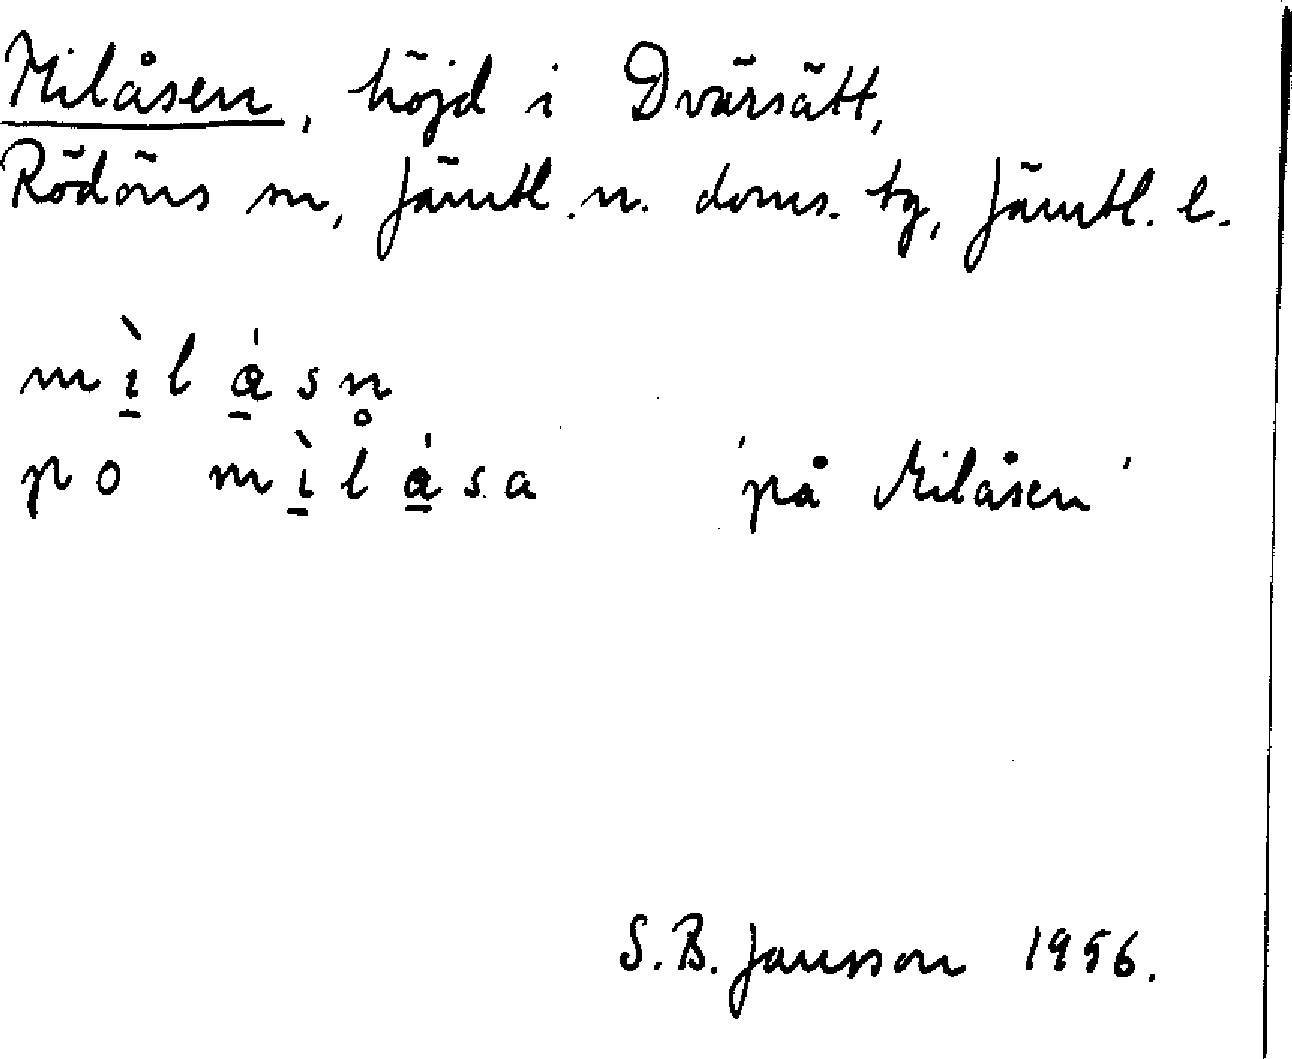 Milåsen, höjd i Dvärsätt,
Rödöns sn, Jämtl. n. doms. tg, Jämtl. l.
mı̱̀lά̱sn̥
po mı̱̀lά̱sa 'på Milåsen'
S. B. Jansson 1956.